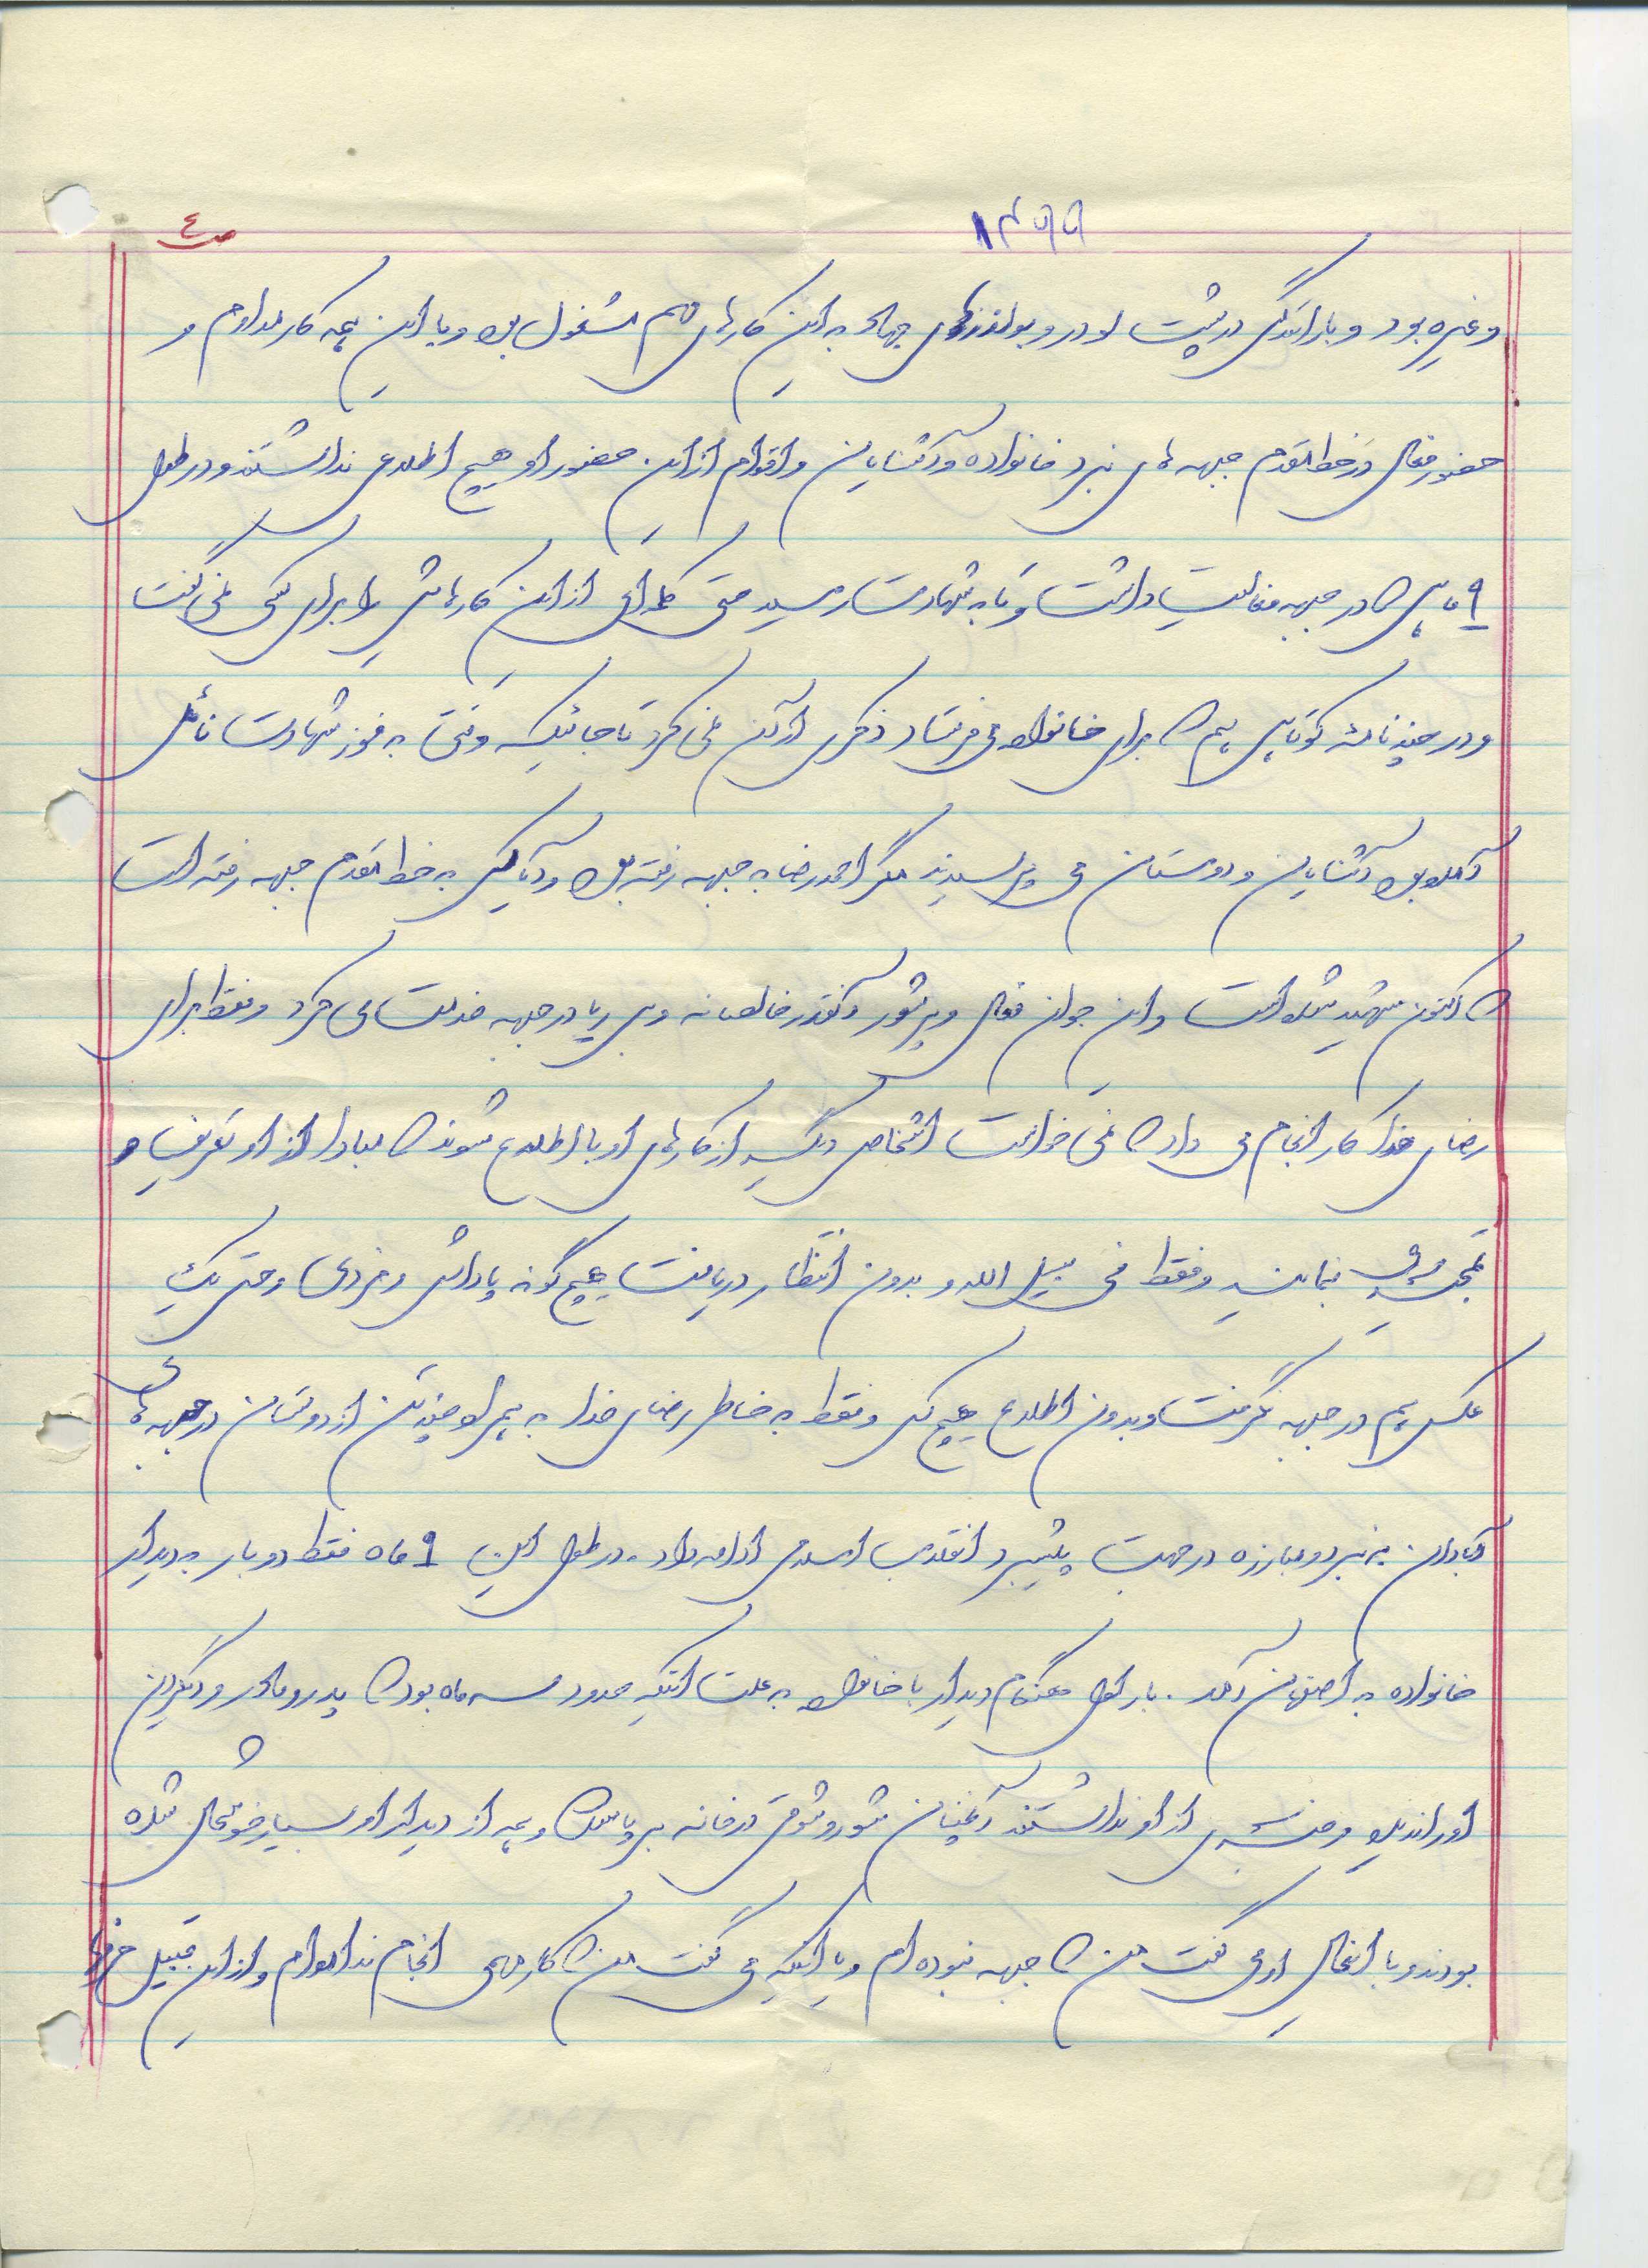 ص ٤
وغیره بود و با رانندگی در پشت لودر و بولدزرهای جهاد به این کارهای مهم مشغول بود و با این همه کار مداوم و
حضور فعال در خط مقدم جبهه های نبرد خانواده و آشنایان و اقوام از این حضور او هیچ اطلاعی نداشتند و در طول
۹ ماهی که در جبهه فعالیت داشت و تا به شهادت رسید حتی کلمه ای از این کارهایش را برای کسی نمی گفت
و در چند نامه کوتاهی هم که برای خانواده می فرستاد ذکری از آن نمی کرد تا جائیکه وقتی به فوز شهادت نائل
آمده بود آشنایان و دوستان می پرسیدند مگر احمدرضا به جبهه رفته بود و آیا کی به خط مقدم جبهه رفته است
که اکنون شهید شده است و این جوان فعال و پرشور آنقدر خالصانه و بی ریا در جبهه خدمت می کرد و فقط برای
رضای خدا کار انجام می داد که نمی خواست اشخاص دیگر از کارهای او با اطلاع شوند که مبادا از او تعریف و
تمجید نمایند و فقط فی سبیل الله و بدون انتظار دریافت هیچ گونه پاداش و مزدی و حتی یک
عکس هم در جبهه نگرفت و بدون اطلاع هیچ کس و فقط به خاطر رضای خدا به همراه چند تن از دوستان در جبهه های
آبادان به نبرد و مبارزه در جهت پیشبرد انقلاب اسلامی ادامه داد. در طول این ۹ ماه فقط دو بار به دیدار
خانواده به اصفهان آمد. بار اول هنگام دیدار با خانواده به علت اینکه حدود سه ماه بود که پدر و مادر و دیگران
او را ندیده و خبری از او نداشتند آنچنان شور و شوقی در خانه بر پا شد که همه از دیدار او بسیار خوشحال شده
بودند و با انفعال او می گفت من که جبهه نبوده ام و یا اینکه می گفت من که کار مهمی انجام نداده ام و از این قبیل حرفها